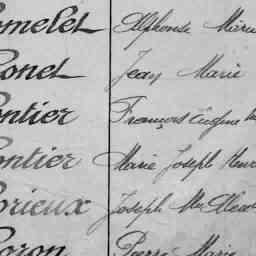 omelet Alphonse Marie
onet Jean Marie
ontier François Eugène
ontier Marie Joseph Henri
orieux Joseph Mie
oron Pierre Marie